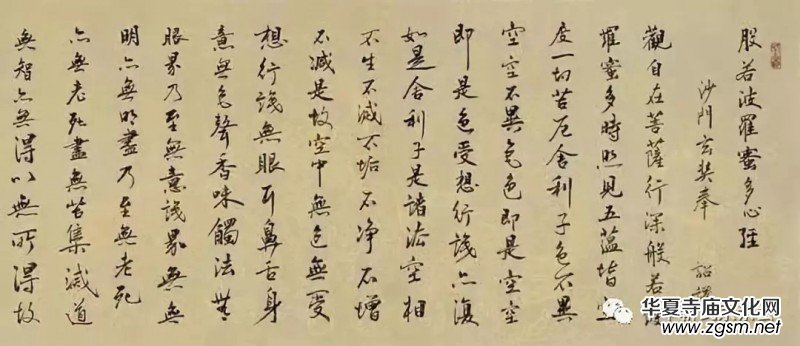 般若波羅蜜多心經
沙門玄奘奉 詔譯
觀自在菩薩行深般若波
羅蜜多時照見五蘊皆空
度一切苦厄舍利子色不異
空空不異色色即是空空
即是色受想行識亦復
如是舍利子是諸法空相
不生不滅不垢不净不增
不減是故空中無色無受
想行識無眼耳鼻舌身
意無色聲香味觸法無
眼界乃至無意識界無無
明亦無明盡乃至無老死
亦無老死盡無苦集滅道
無智亦無得以無所得故
华夏寺庙文化网
www.zgsm.net